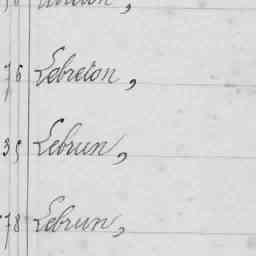 76 Lebreton,
35 Lebrun,
78 Lebrun,